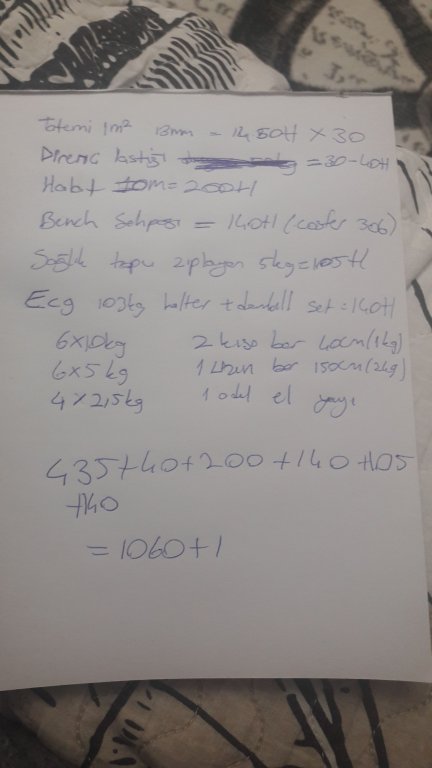 Tatemi 1m² 13mm = 14,50tl × 30
Direnç lastiği = 30-40tl
Halat 10m = 200tl
Bench Sehpası = 140tl (cosfer 306)
Sağlık topu zıplayan 5kg = 105tl
Ecg 103kg halter + dambıll set = 140tl
6×10kg 2 kısa bar 40cm (1kg)
6×5kg 1 uzun bar 150cm (2kg)
4×2,5kg 1 adet el yayı
435+40+200+140+105
+140
= 1060+1